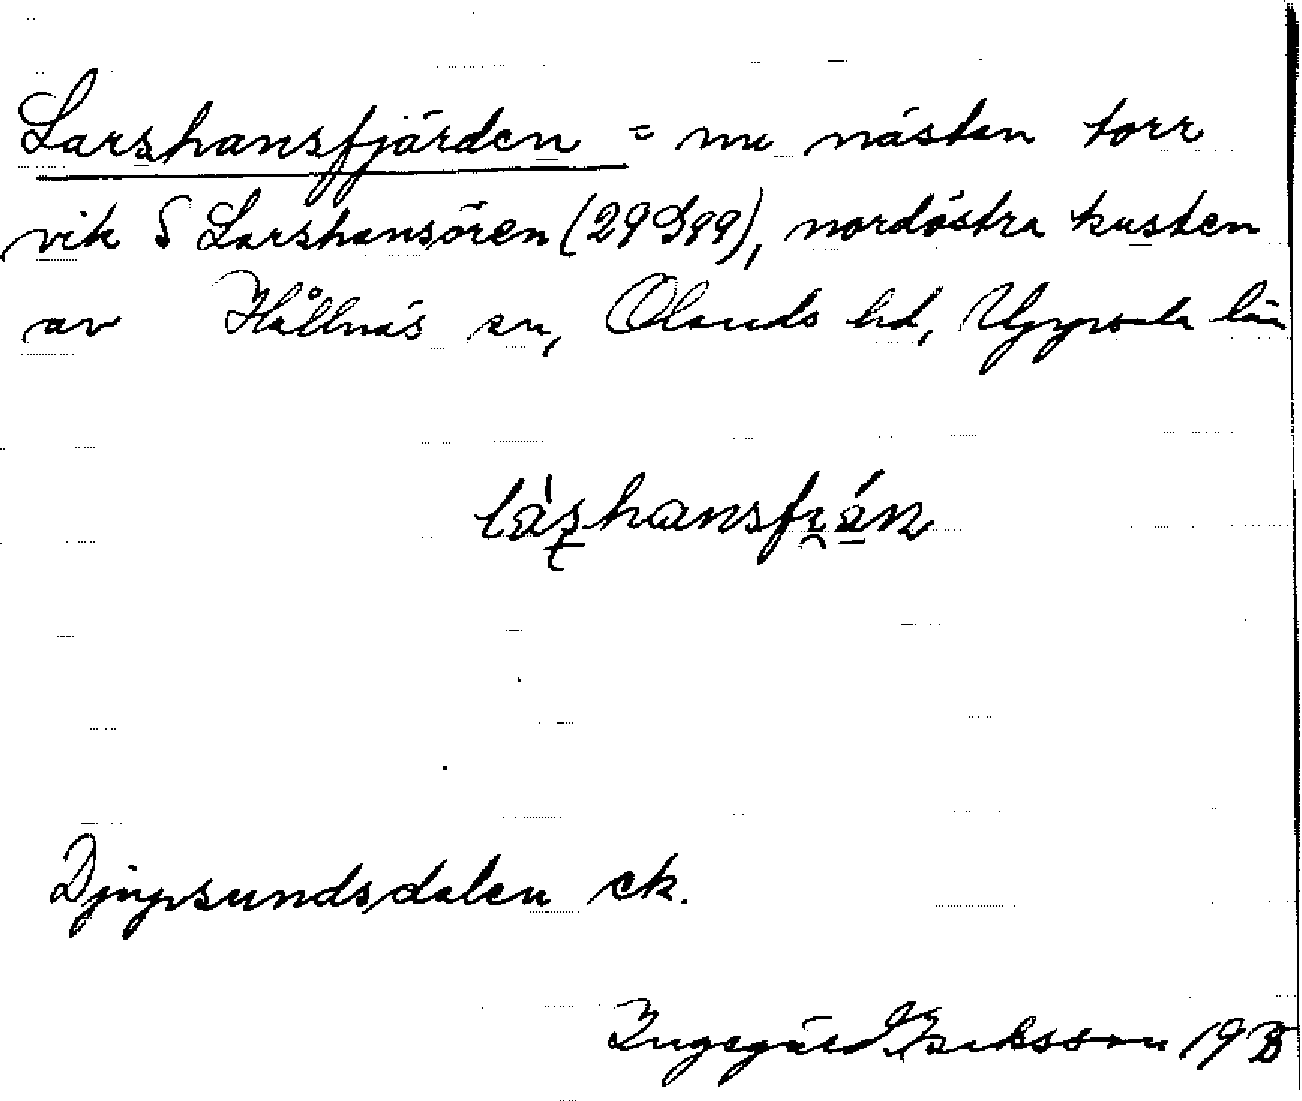 Larshansfjärden = nu nästan torr
vik S Larshansören (29D99), nordöstra kusten
av Hållnäs sn, Olands hd, Uppsala län
Djupsundsdalen ek.
Ingegärd Eriksson